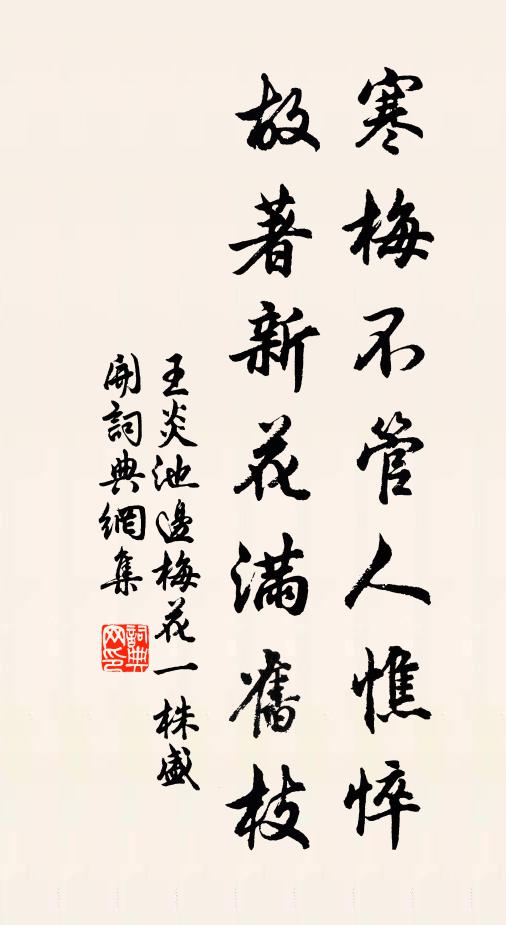 寒梅不管人憔悴
故著新花滿舊枝
王炎池邊梅花一株盛
開詞典網集
詞典
网印